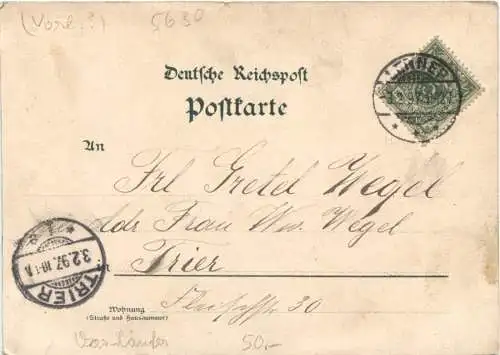 (Vorl.?) 5630
Deutsche Reichspost
Postkarte
An
Frl Gretel Wegel
adr Frau Ww. Wegel
in Trier
Wohnung
(Straße und Hausnummer)
Fleischstr 30
TRIER
3.2.97.
LEHMEN
Vorläufer 50.-